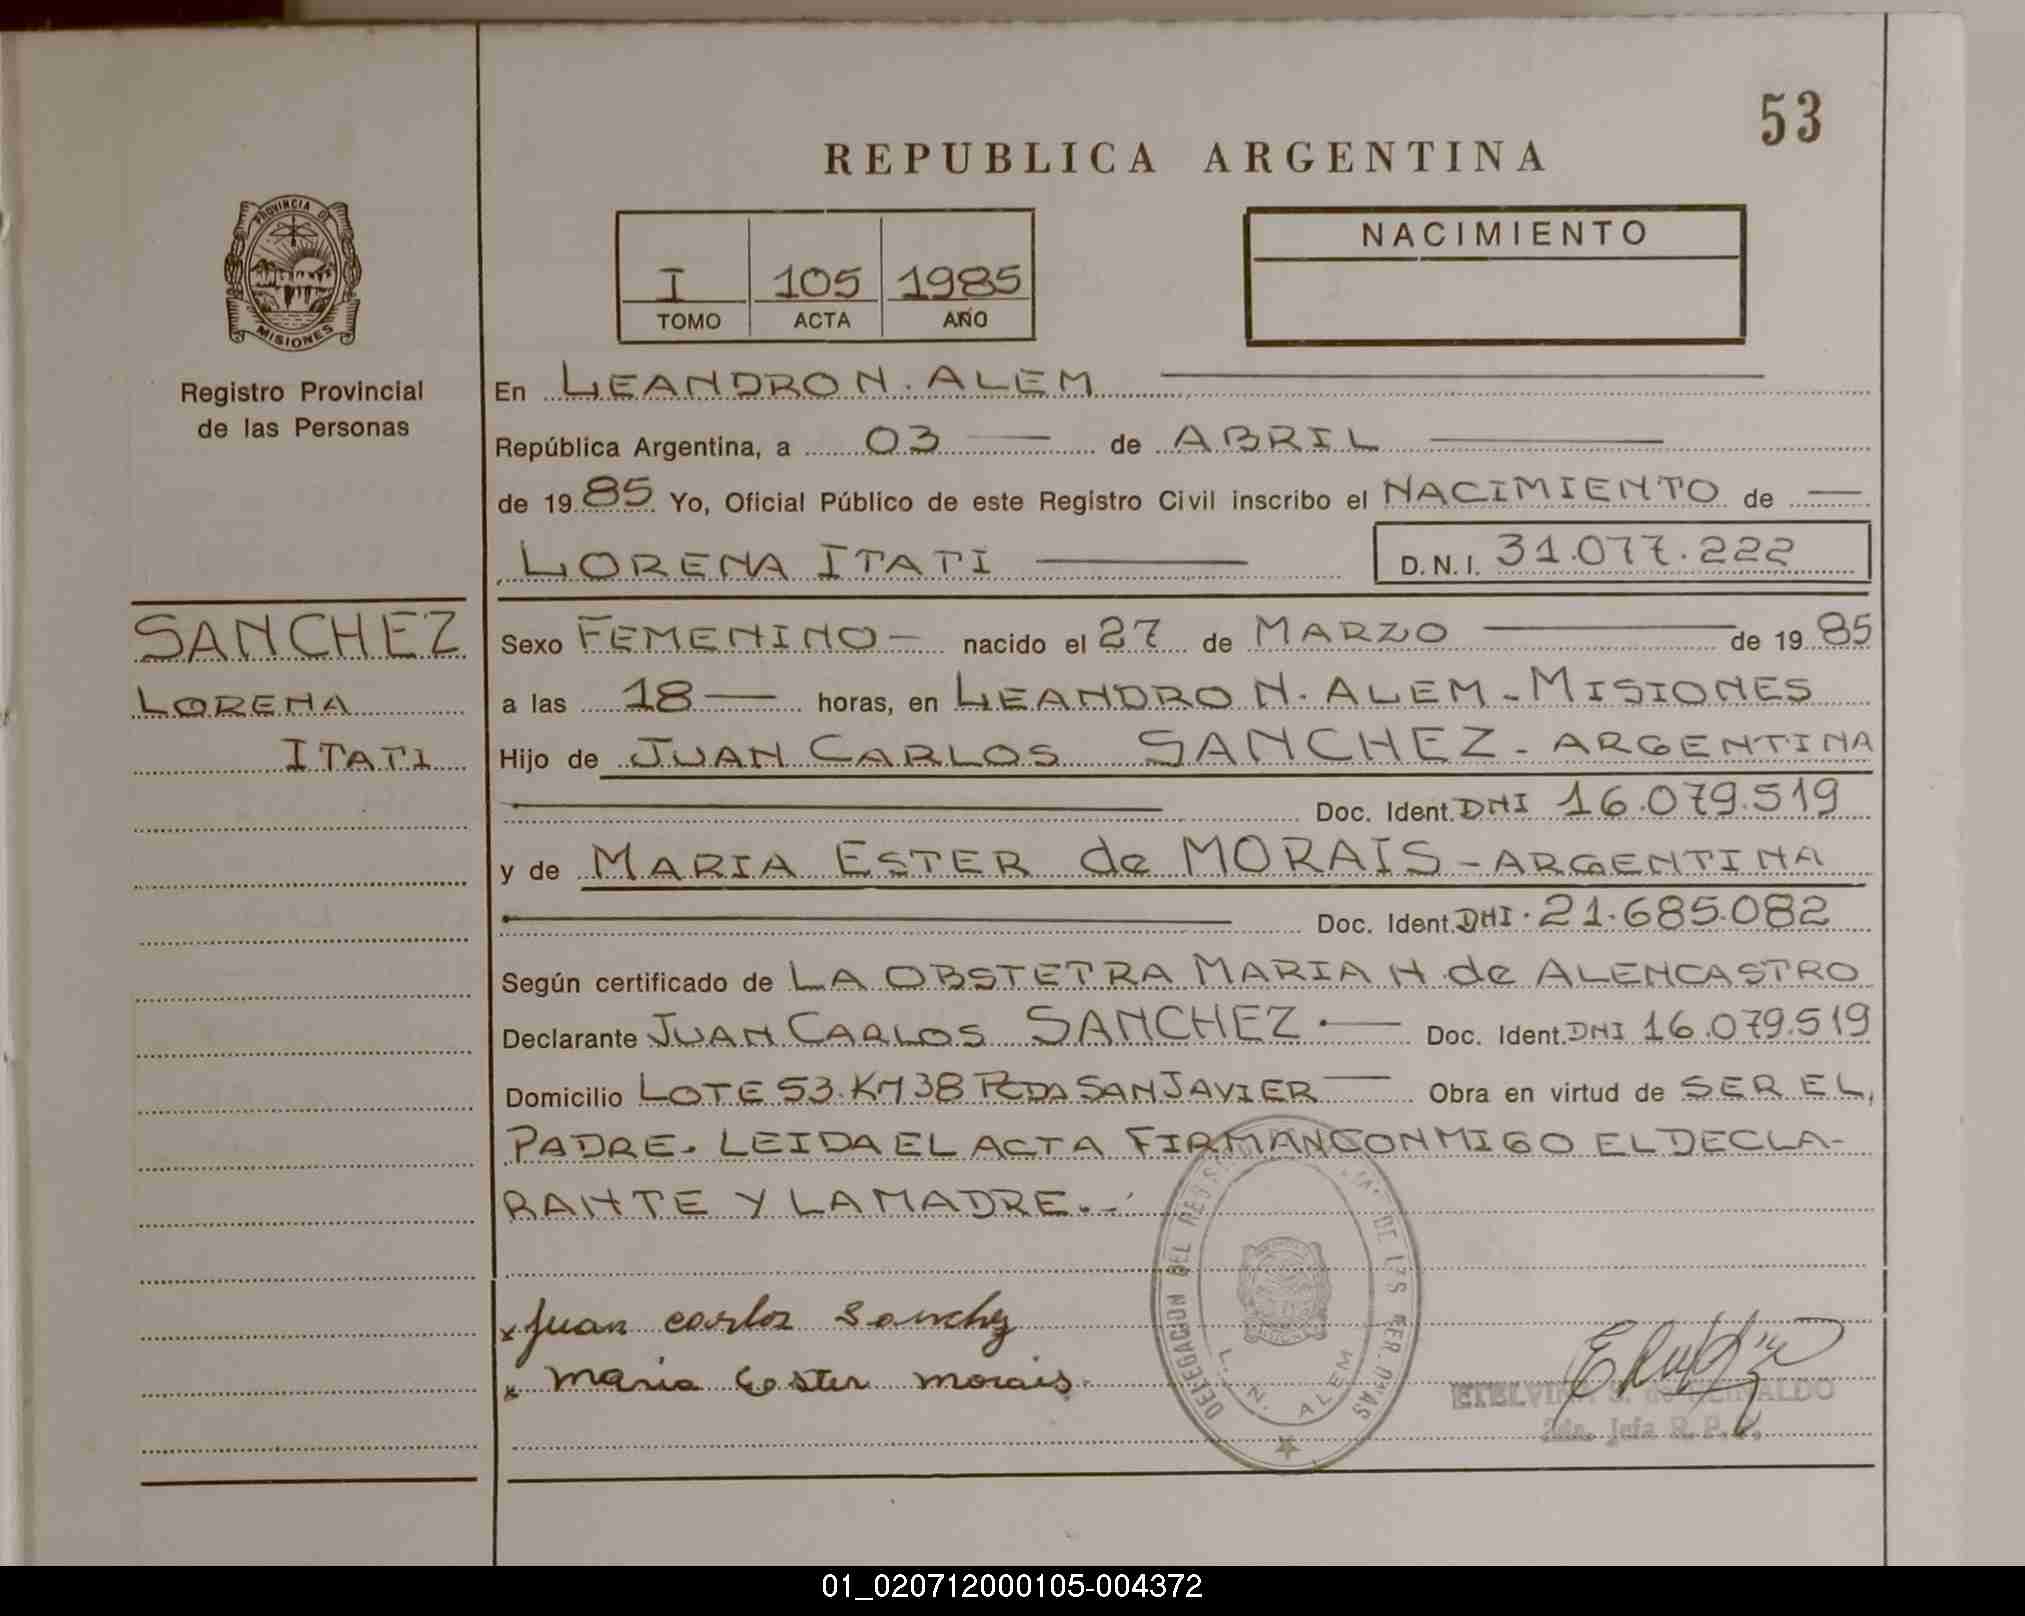 53
REPUBLICA ARGENTINA
PROVINCIA DE
MISIONES
Registro Provincial
de las Personas
I 105 1985
TOMO ACTA AÑO
NACIMIENTO
En LEANDRO N. ALEM
República Argentina, a 03 de ABRIL
de 19 85 Yo, Oficial Público de este Registro Civil inscribo el NACIMIENTO de
LORENA ITATI D.N.I. 31.077.222
SANCHEZ
LORENA
ITATI
Sexo FEMENINO - nacido el 27 de MARZO de 19 85
a las 18 horas, en LEANDRO N. ALEM - MISIONES
Hijo de JUAN CARLOS SANCHEZ - ARGENTINA
Doc. Ident. DNI 16.079.519
y de MARIA ESTER de MORAIS - ARGENTINA
Doc. Ident. DNI. 21.685.082
Según certificado de LA OBSTETRA MARIA N. de ALENCASTRO
Declarante JUAN CARLOS SANCHEZ. Doc. Ident. DNI 16.079.519
Domicilio LOTE 53 KM 38 PCDA SAN JAVIER Obra en virtud de SER EL
PADRE. LEIDA EL ACTA FIRMAN CONMIGO EL DECLA-
RANTE Y LA MADRE.-
x Juan Carlos Sanchez
x Maria Ester morais
DELEGACION DEL
DE LAS PERSONAS
L. N. ALEM
2da. Jefa R. P. P.
01_020712000105-004372